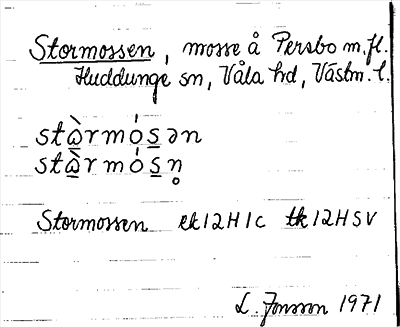 Stormossen, mosse å Persbo m.fl.
Huddunge sn, Våla hd, Västm. l.
stὼ̲rmós̲ən
stὼ̲rmós̲n̥
Stormossen ek12H1c tk12HSV
L. Jonsson 1971